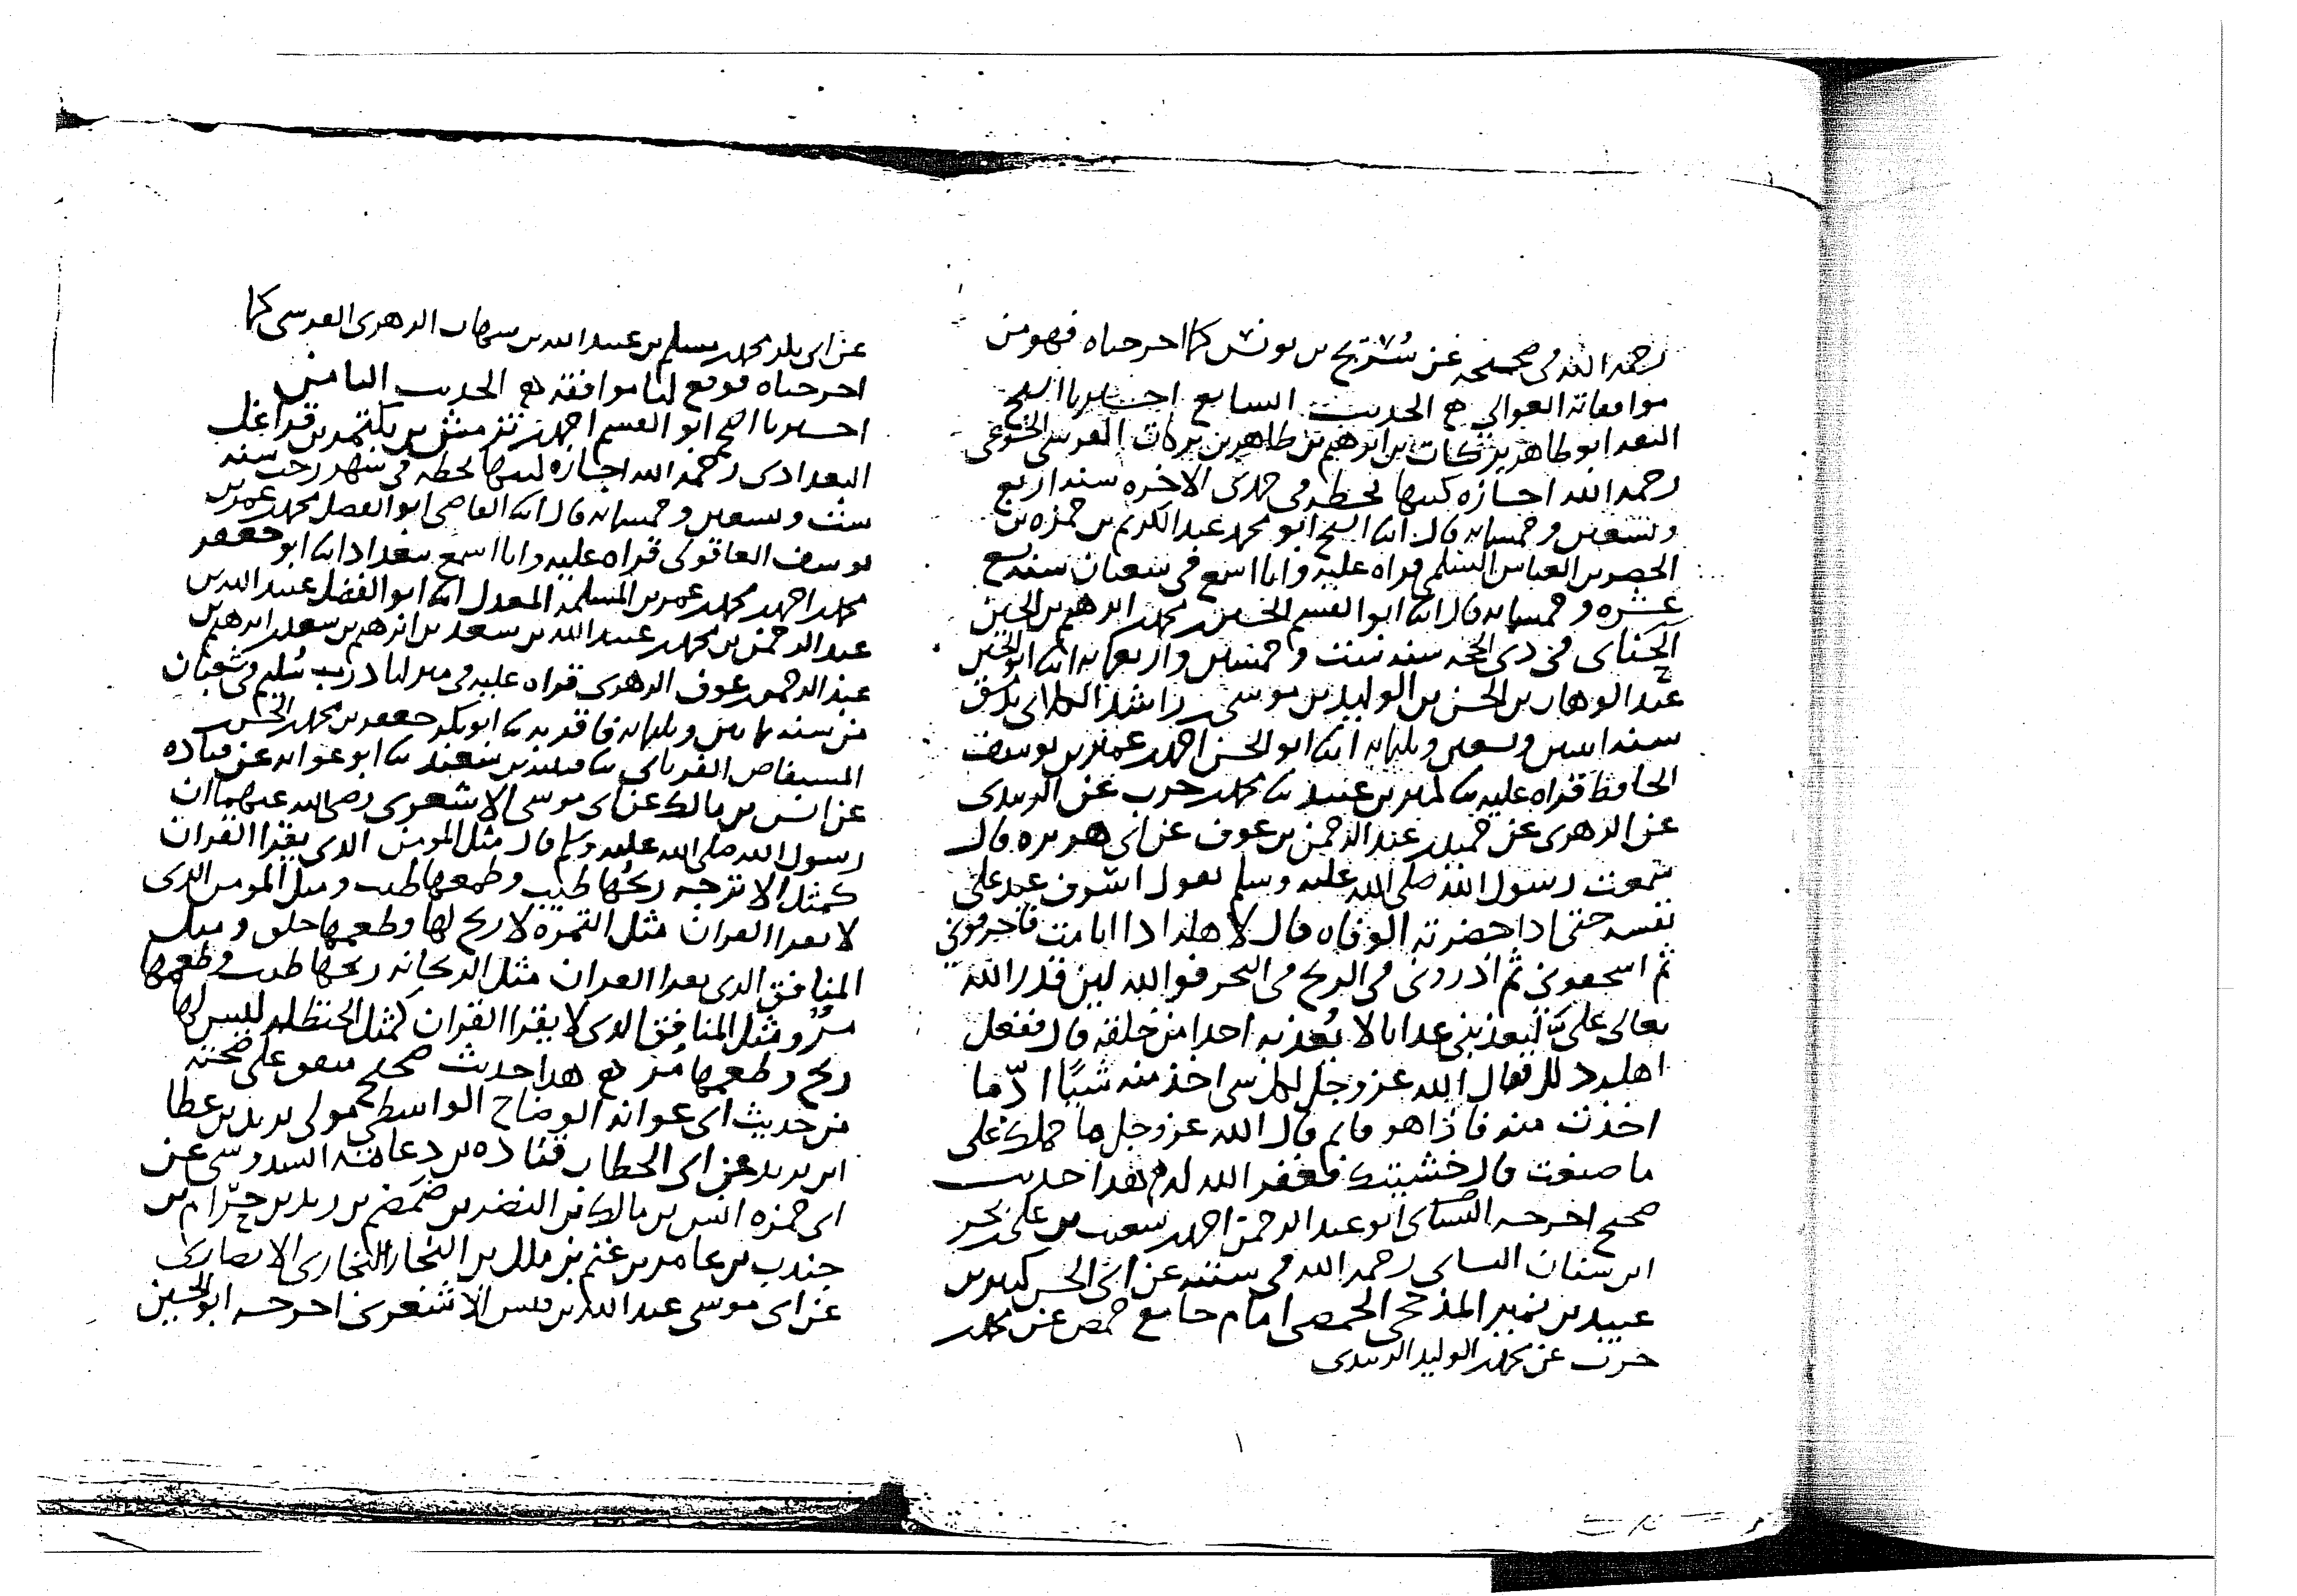 رحمه الله في صحيحه عن سريج بن يونس كما اخرجناه فهو من
موافقاته العوالي الحديث السابع اخبرنا الشيخ
ابو طاهر بركات بن ابرهيم بن طاهر بن بركات القرشي الخشوعي
رحمه الله اجازه كتبها بخطه في جمدى الاخره سنه اربع
وتسعين وخمسمايه قال انا الشيخ ابو محمد عبد الكريم بن حمزه بن
الخضر بن العباس السلمي قراه عليه وانا اسمع في شعبان سنه
عشره وخمسمايه قال انا ابو القسم الحسين بن محمد بن ابرهيم بن الحسين
الحناي في ذي الحجه سنه ست وخمسين واربعمايه انا ابو الحسين
عبد الوهاب بن الحسن بن الوليد بن موسى بن راشد الكلابي بدمشق
سنه اثنين وتسعين وثلثمايه انا ابو الحسن احمد بن عمير بن يوسف
الحافظ قراه عليه ثنا كثير بن عبيد ثنا محمد بن حرب عن الزبيدي
عن الزهري عن حميد بن عبد الرحمن بن عوف عن ابي هريره قال
سمعت رسول الله صلى الله عليه وسلم يقول اسرف عبد على
نفسه حتى اذا حضرته الوفاه قال لاهله اذا انا مت فاحرقوني
ثم اسحقوني ثم اذروني في الريح في البحر فوالله لين قدر الله
تعالى علي ليعذبني عذابا لا يعذبه احدا من خلقه قال ففعل
اهله ذلك فقال الله عز وجل لكل شي اخذ منه شيًا ادّ ما
اخذت منه فاذا هو قايم قال الله عز وجل ما حملك على
ما صنعت قال خشيتك فغفر الله له هذا حديث
صحيح اخرجه النساي ابو عبد الرحمن احمد بن شعيب بن علي بن بحر
ابن سنان النساي رحمه الله في سننه عن ابي الحسن كثير بن
عبيد بن نمير المذحجي الحمصي امام جامع حمص عن محمد بن
حرب عن محمد بن الوليد الزبيدي
عن ابي بكر محمد بن مسلم بن عبيد الله بن شهاب الزهري القرشي كما
اخرجناه فوقع لنا موافقه الحديث الثامن
اخبرنا الشيخ ابو القسم احمد بن تزمش بن بكتمر بن قراغلي
البغدادي رحمه الله اجازه كتبها بخطه في شهر رجب سنه
ست وتسعين وخمسمايه قال انا القاضي ابو الفضل محمد بن عمر بن
يوسف العاقولي قراه عليه وانا اسمع ببغداد انا ابو جعفر
محمد بن احمد بن محمد بن عمر بن المسلمه المعدل انا ابو الفضل عبيد الله بن
عبد الرحمن بن محمد بن عبيد الله بن سعد بن ابرهيم بن سعد بن ابرهيم بن
عبد الرحمن بن عوف الزهري قراه عليه في منزلنا درب سُليم في شعبان
من سنه ثمانين وثلثمايه فاقر به ثنا ابو بكر جعفر بن محمد بن الحسن بن
المستفاض الفريابي ثنا قتيبه بن سعيد ثنا ابو عوانه عن قتاده
عن انس بن مالك عن ابي موسى الاشعري رضي الله عنهما ان
رسول الله صلى الله عليه وسلم قال مثل المومن الذي يقرا القران
كمثل الاترجه ريحُها طيب وطعمها طيب ومثل المومن الذي
لا يقرا القران مثل التمره لا ريح لها وطعمها حلو ومثل
المنافق الذي يقرا القران مثل الريحانه ريحها طيب وطعمها
مرٌ ومثل المنافق الذي لا يقرا القران كمثل الحنظله ليس لها
ريح وطعمها مُر هذا حديث صحيح متفق على صحته
من حديث ابي عوانه الوضاح الواسطي مولى يزيد بن عطا
ابن يزيد عن ابي الخطاب قتاده بن دعامه السدوسي عن
ابي حمزه انس بن مالك بن النضر بن ضمضم بن زيد بن حرام بن
جندب بن عامر بن غنم بن ملك بن النجار النجاري الانصاري
عن ابي موسى عبد الله بن قيس الاشعري اخرجه ابو الحسين